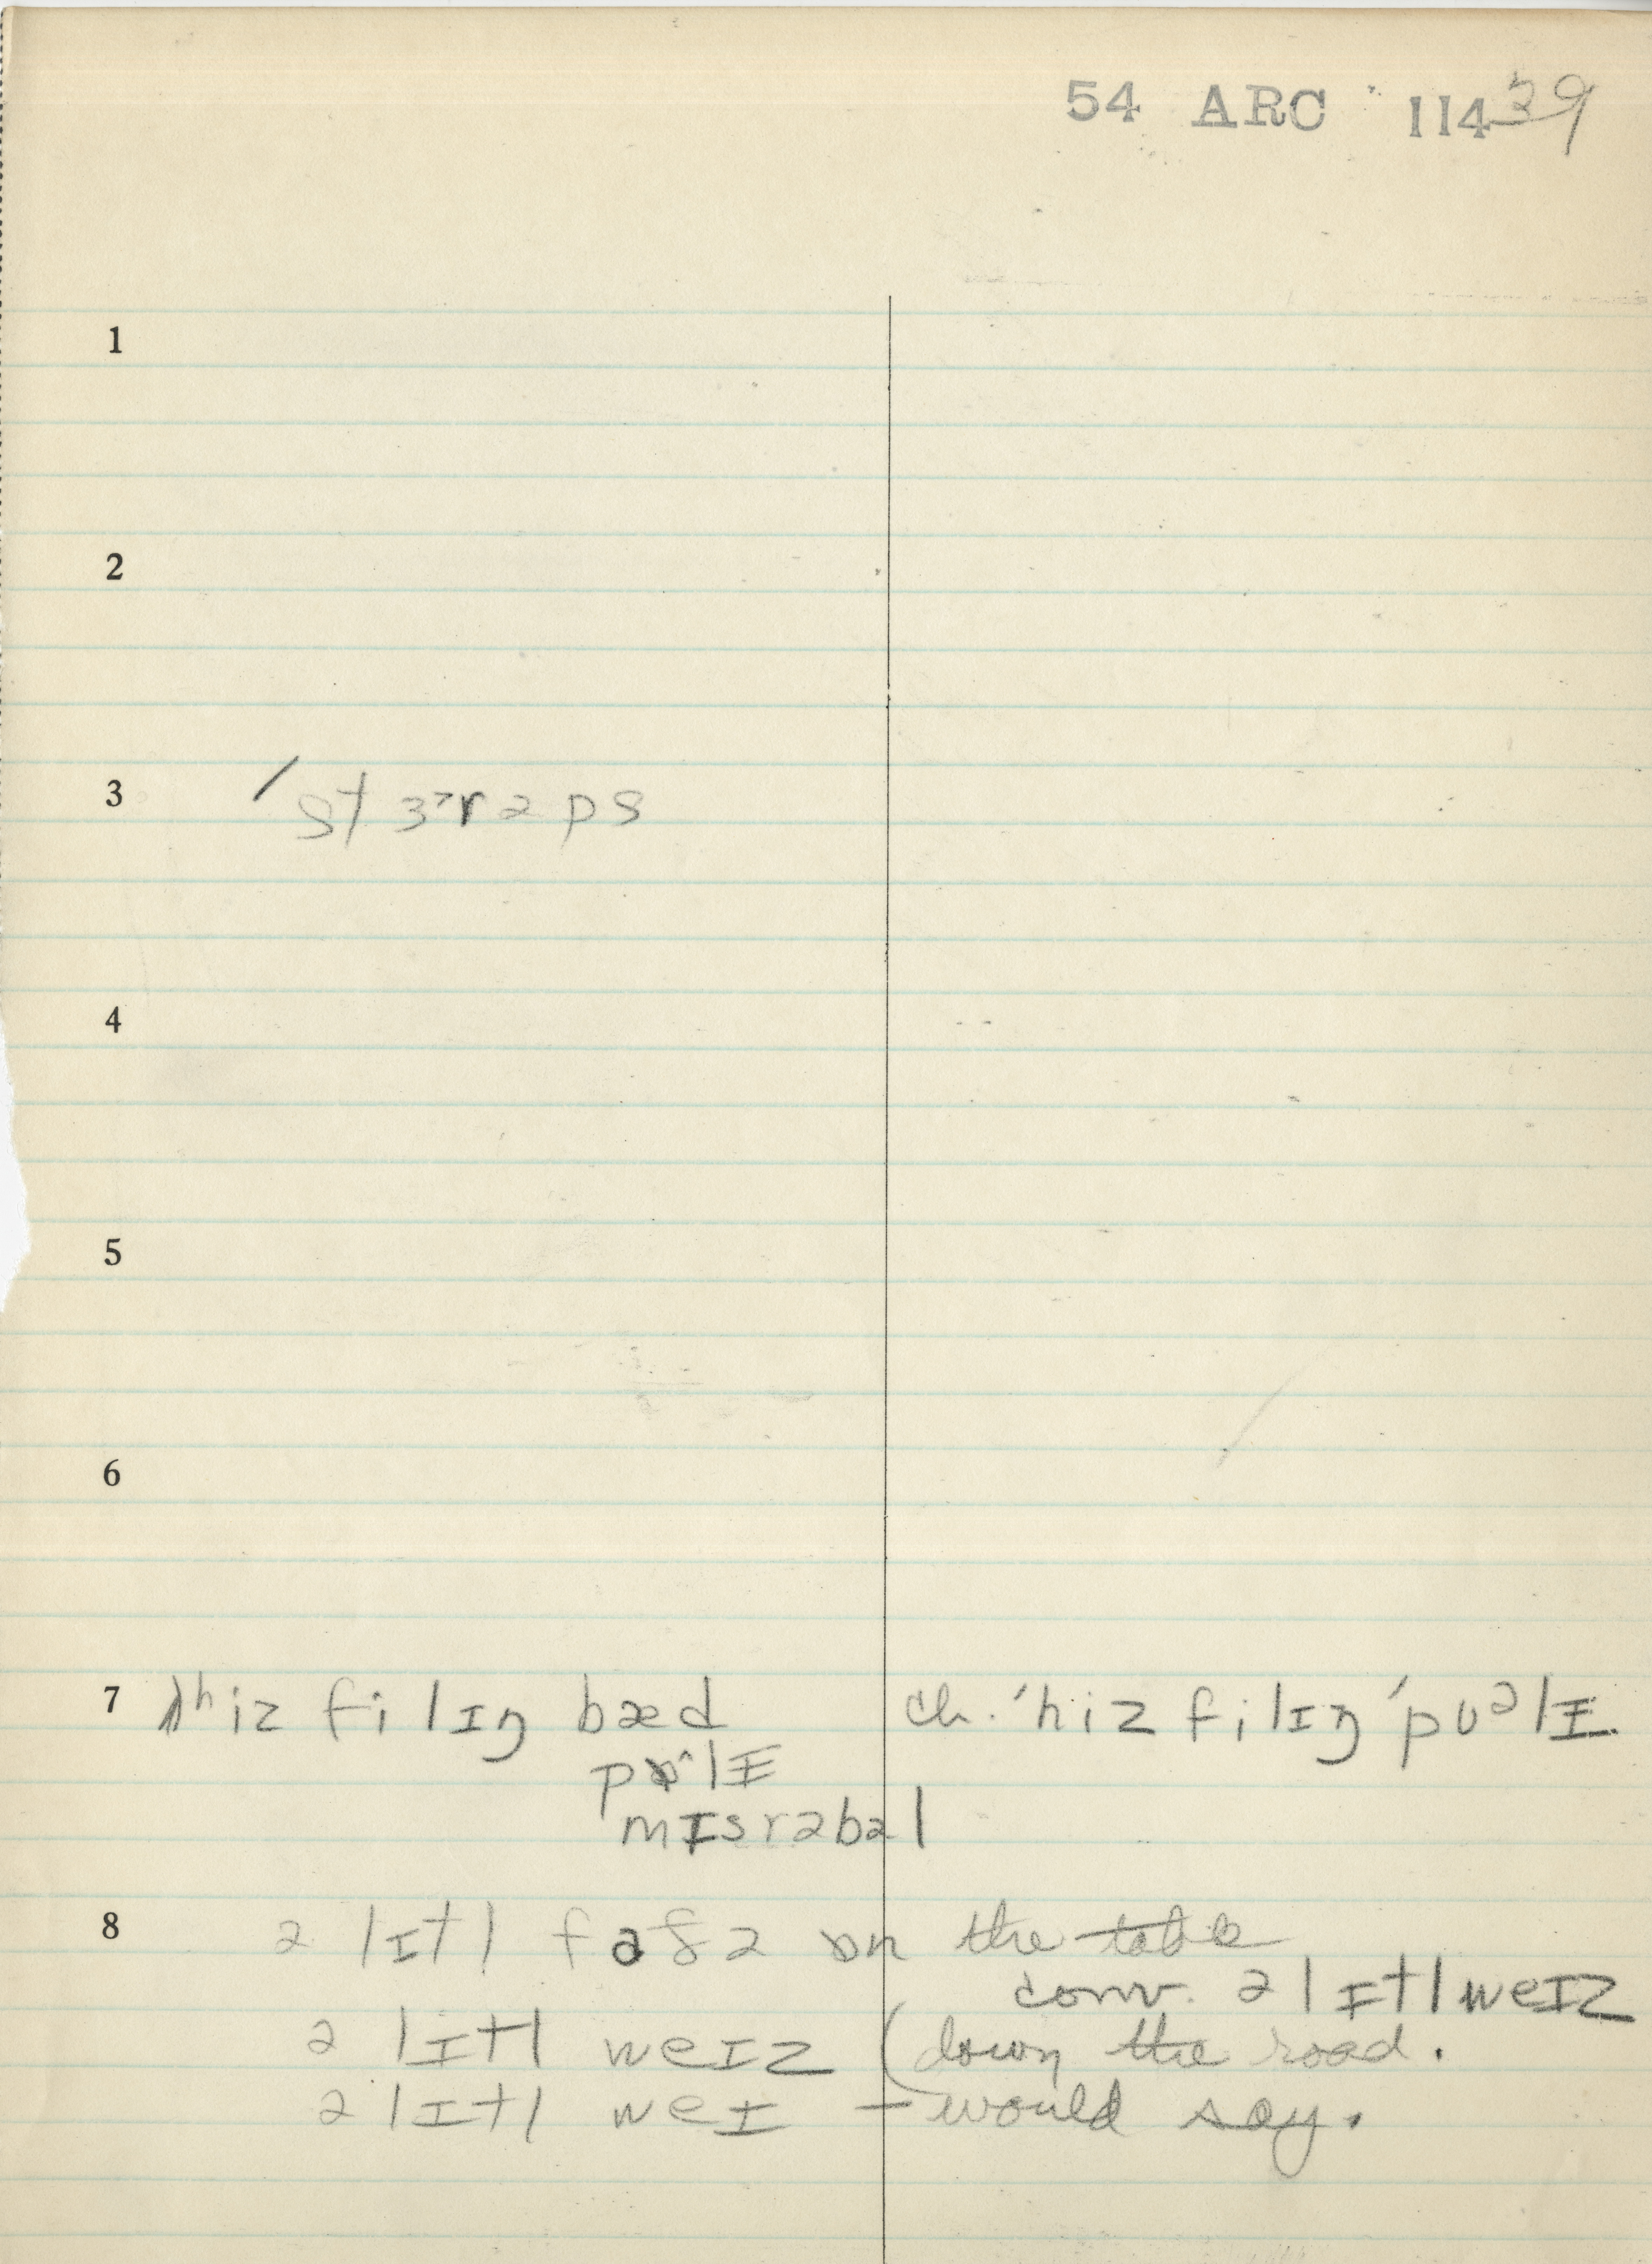 54 ARC 11439
1
2
3 ˈstɝrəps
4
5
6
7 hiz filɪŋ bæd ch. ˈhiz filɪŋ ˈpʊəlɪ
mɪsrəbəl
8 ə lɪtl on the table
conv. ə lɪtl weɪz
ə lɪtl weɪz (down the road.
ə lɪtl weɪ – would say.